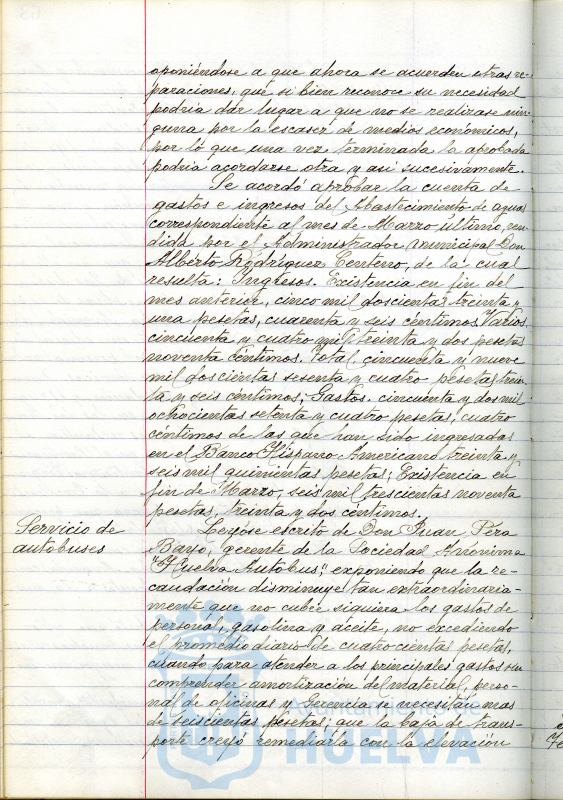 oponiéndose a que ahora se acuerden otras re-
paraciones, que si bien reconoce su necesidad
podria dar lugar a que no se realizase nin-
guna por la escasez de medios económicos,
por lo que una vez terminada la aprobada
podria acordarse otra y asi sucesivamente.
Se acordó aprobar la cuenta de
gastos e ingresos del Abastecimiento de aguas
correspondiente al mes de Marzo último, ren-
dida por el Administrador municipal Don
Alberto Rodríguez Centeno, de la cual
resulta: Ingresos. Existencia en fin del
mes anterior, cinco mil doscientas treinta y
una pesetas, cuarenta y seis céntimos. Varios,
cincuenta y cuatro mil treinta y dos pesetas
noventa céntimos. Total, cincuenta y nueve
mil doscientas sesenta y cuatro pesetas trein-
ta y seis céntimos; Gastos. cincuenta y dos mil
ochocientas setenta y cuatro pesetas, cuatro
céntimos de las que han sido ingresadas
en el Banco Hispano Americano treinta y
seis mil quinientas pesetas; Existencia en
fin de Marzo, seis mil trescientas noventa
pesetas, treinta y dos céntimos.
Servicio de
autobuses
Leyóse escrito de Don Juan Pera
Bayo, gerente de la Sociedad Anónima
"Huelva Autobus", exponiendo que la re-
caudación disminuye tan extraordinaria-
mente que no cubre siquiera los gastos de
personal, gasolina y aceite, no excediendo
el promedio diario de cuatrocientas pesetas,
cuando para atender a los principales gastos sin
comprender amortización del material, perso-
nal de oficinas y Gerencia se necesitan mas
de seiscientas pesetas; que la baja de trans-
porte creyó remediarla con la elevación
HUELVA